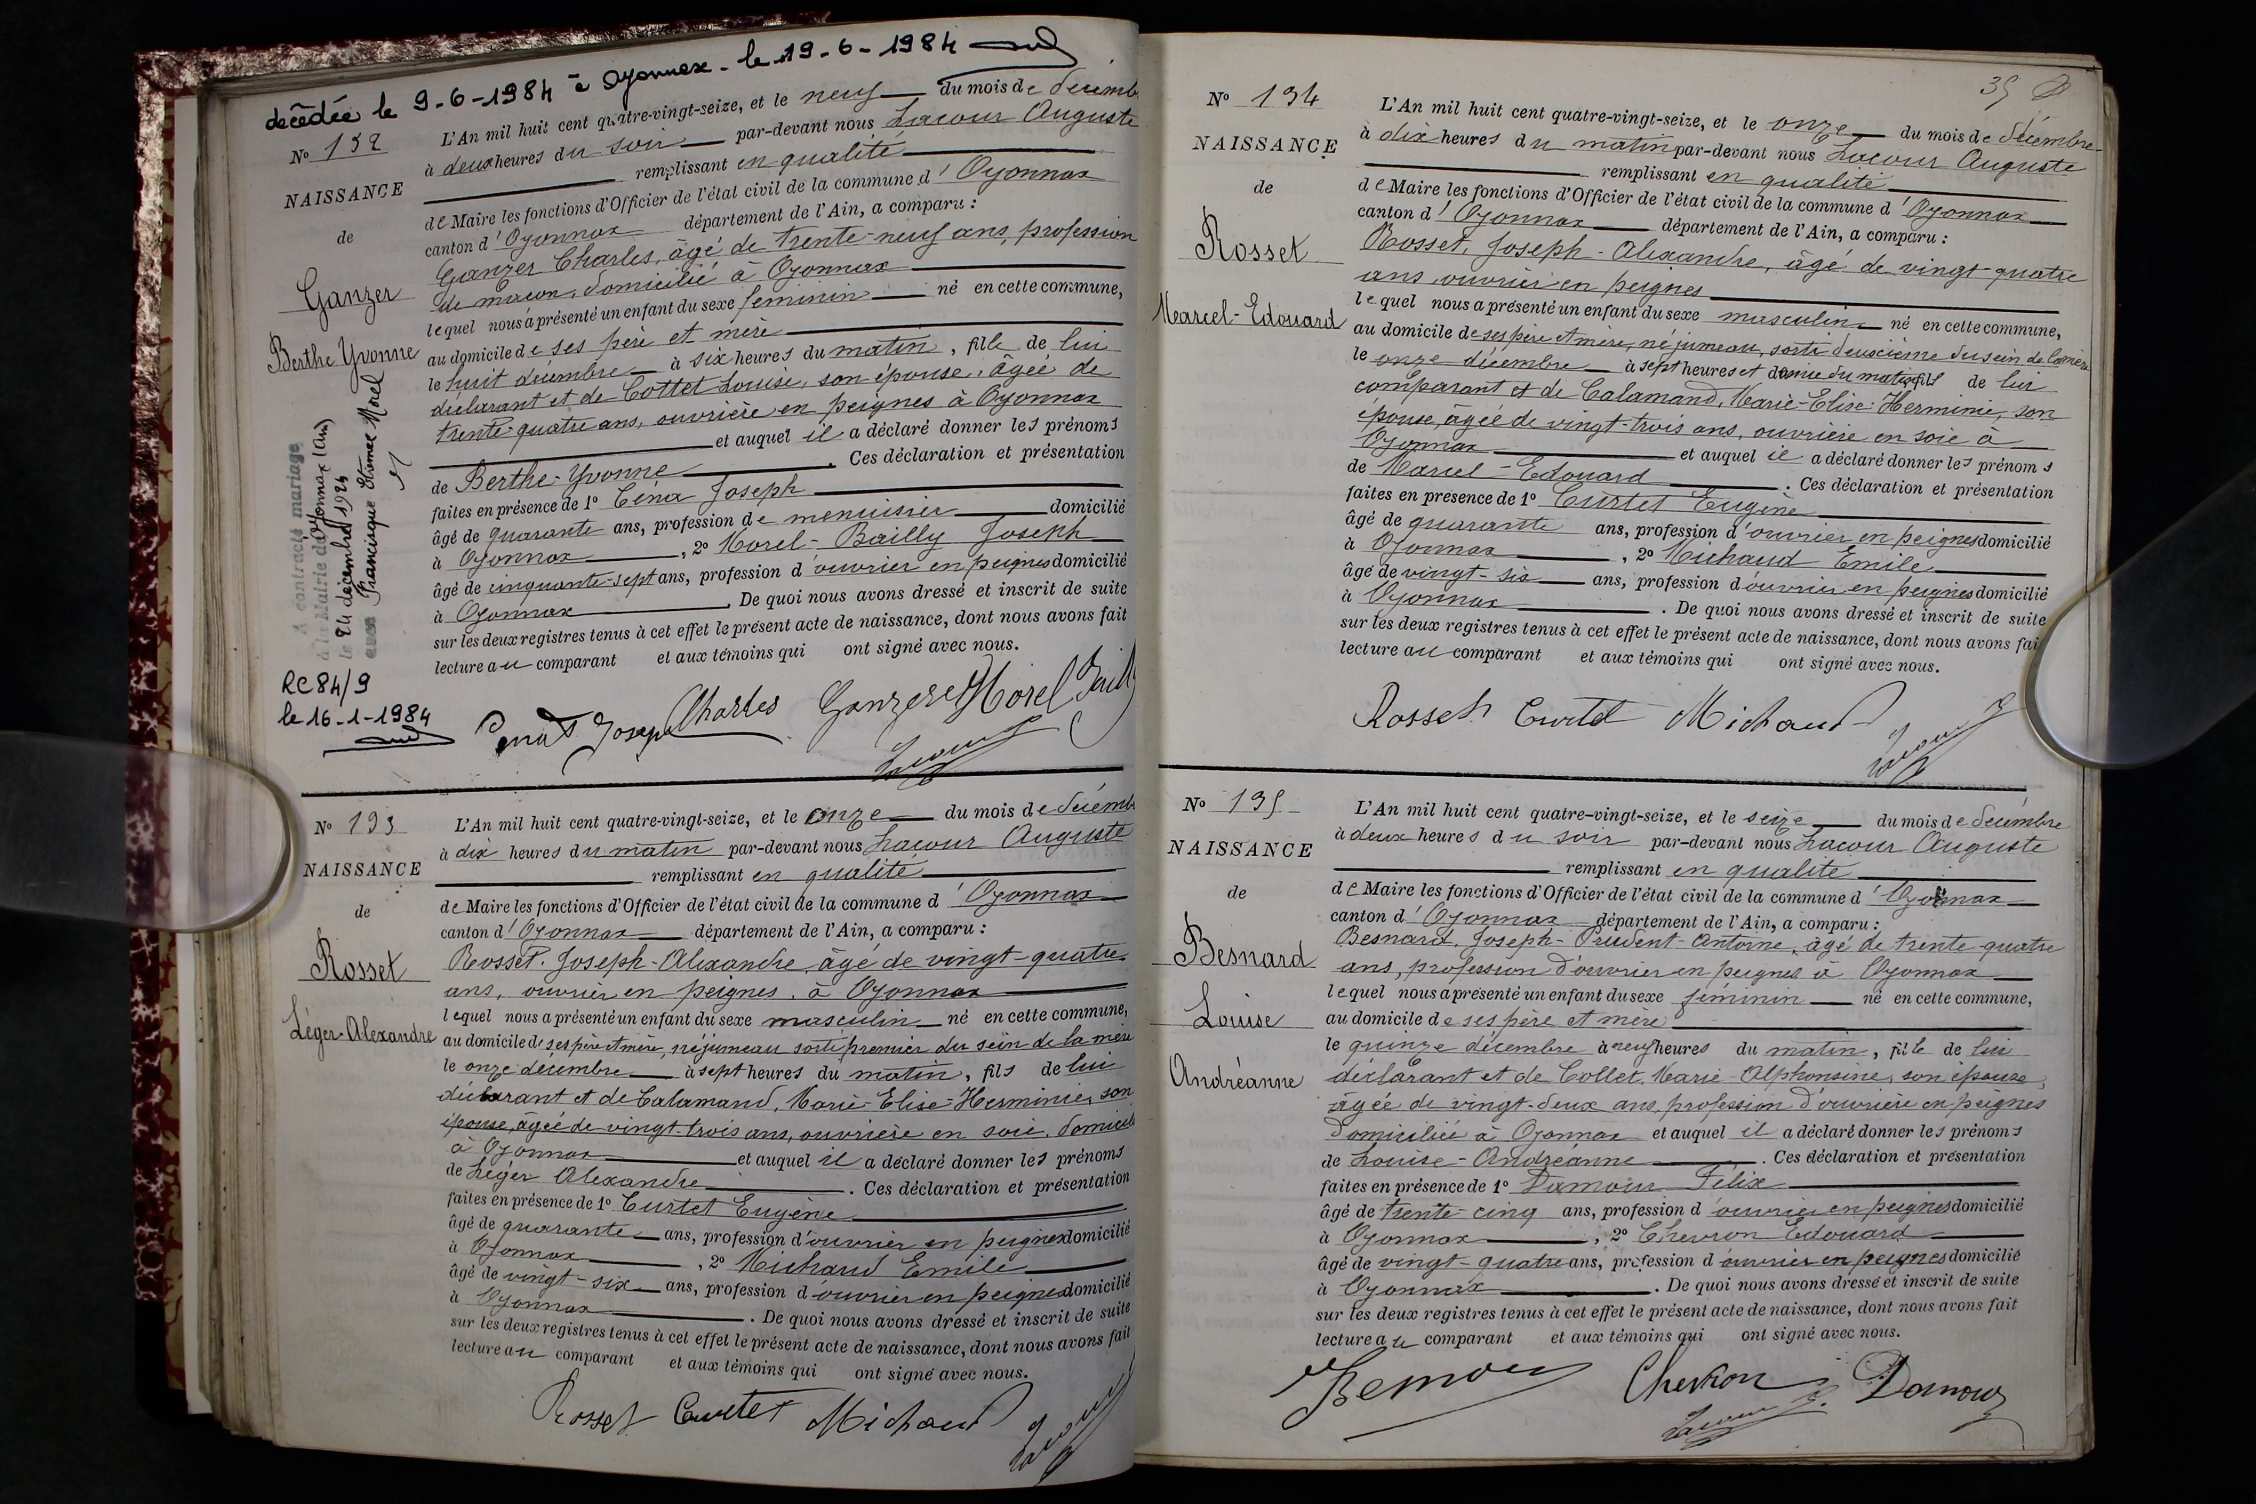 décédée le 9-6-1984 à Oyonnax - le 19-6-1984
No 132
NAISSANCE
de
Ganzer
Berthe Yvonne
A contracté mariage
à la Mairie d'Oyonnax (Ain)
le 24 décembre 1924
avec Francisque Etienne Morel
RC 84/9
le 16-1-1984
L'An mil huit cent quatre-vingt-seize, et le neuf du mois de décemb
à deux heures du soir par-devant nous Lacour Auguste
remplissant en qualité
de Maire les fonctions d'Officier de l'état civil de la commune d'Oyonnax
canton d'Oyonnax département de l'Ain, a comparu :
Ganzer Charles, âgé de trente-neuf ans, profession
de maçon, domicilié à Oyonnax
lequel nous a présenté un enfant du sexe féminin né en cette commune,
au domicile de ses père et mère
le huit décembre à six heures du matin, fille de lui
déclarant et de Cottet Louise, son épouse, âgée de
trente-quatre ans, ouvrière en peignes à Oyonnax
et auquel il a déclaré donner les prénoms
de Berthe-Yvonne. Ces déclaration et présentation
faites en présence de 1° Joseph
âgé de quarante ans, profession de menuisier domicilié
à Oyonnax, 2° Morel-Bailly Joseph
âgé de cinquante-sept ans, profession d'ouvrier en peignes domicilié
à Oyonnax. De quoi nous avons dressé et inscrit de suite
sur les deux registres tenus à cet effet le présent acte de naissance, dont nous avons fait
lecture au comparant et aux témoins qui ont signé avec nous.
Joseph Charles Ganzer Morel Bailly
Lacour
No 133
NAISSANCE
de
Rosset
Léger-Alexandre
L'An mil huit cent quatre-vingt-seize, et le onze du mois de décemb
à dix heures du matin par-devant nous Lacour Auguste
remplissant en qualité
de Maire les fonctions d'Officier de l'état civil de la commune d'Oyonnax
canton d'Oyonnax département de l'Ain, a comparu :
Rosset Joseph-Alexandre, âgé de vingt-quatre
ans, ouvrier en peignes, à Oyonnax
lequel nous a présenté un enfant du sexe masculin né en cette commune,
au domicile de ses père et mère, né jumeau sorti premier du sein de la mère
le onze décembre à sept heures du matin, fils de lui
déclarant et de Calamand, Marie-Elise-Herminie, son
épouse, âgée de vingt-trois ans, ouvrière en soie, domicili
à Oyonnax et auquel il a déclaré donner les prénoms
de Léger Alexandre. Ces déclaration et présentation
faites en présence de 1° Curtet Eugène
âgé de quarante ans, profession d'ouvrier en peignes domicilié
à Oyonnax, 2° Michaud Emile
âgé de vingt-six ans, profession d'ouvrier en peignes domicilié
à Oyonnax. De quoi nous avons dressé et inscrit de suite
sur les deux registres tenus à cet effet le présent acte de naissance, dont nous avons fait
lecture au comparant et aux témoins qui ont signé avec nous.
Rosset Curtet Michaud
Lacour
35
No 134
NAISSANCE
de
Rosset
Marcel-Edouard
L'An mil huit cent quatre-vingt-seize, et le onze du mois de décembre
à dix heures du matin par-devant nous Lacour Auguste
remplissant en qualité
de Maire les fonctions d'Officier de l'état civil de la commune d'Oyonnax
canton d'Oyonnax département de l'Ain, a comparu :
Rosset, Joseph-Alexandre, âgé de vingt-quatre
ans, ouvrier en peignes
lequel nous a présenté un enfant du sexe masculin né en cette commune,
au domicile de ses père et mère, né jumeau, sorti deuxième du sein de la mère
le onze décembre à sept heures et demie du matin, fils de lui
comparant et de Calamand, Marie-Elise-Herminie, son
épouse, âgée de vingt-trois ans, ouvrière en soie à
Oyonnax et auquel il a déclaré donner les prénoms
de Marcel-Edouard. Ces déclaration et présentation
faites en présence de 1° Curtet Eugène
âgé de quarante ans, profession d'ouvrier en peignes domicilié
à Oyonnax, 2° Michaud Emile
âgé de vingt-six ans, profession d'ouvrier en peignes domicilié
à Oyonnax. De quoi nous avons dressé et inscrit de suite
sur les deux registres tenus à cet effet le présent acte de naissance, dont nous avons fai
lecture au comparant et aux témoins qui ont signé avec nous.
Rosset Curtet Michaud
Lacour
No 135
NAISSANCE
de
Besnard
Louise
Andréanne
L'An mil huit cent quatre-vingt-seize, et le seize du mois de décembre
à deux heures du soir par-devant nous Lacour Auguste
remplissant en qualité
de Maire les fonctions d'Officier de l'état civil de la commune d'Oyonnax
canton d'Oyonnax département de l'Ain, a comparu :
Besnard, Joseph-Prudent-Antoine, âgé de trente-quatre
ans, profession d'ouvrier en peignes à Oyonnax
lequel nous a présenté un enfant du sexe féminin né en cette commune,
au domicile de ses père et mère
le quinze décembre à neuf heures du matin, fille de lui
déclarant et de Collet, Marie-Alphonsine, son épouse,
âgée de vingt-deux ans, profession d'ouvrière en peignes
domiciliée à Oyonnax et auquel il a déclaré donner les prénoms
de Louise-Andréanne. Ces déclaration et présentation
faites en présence de 1° Damour Félix
âgé de trente-cinq ans, profession d'ouvrier en peignes domicilié
à Oyonnax, 2° Chevron Edouard
âgé de vingt-quatre ans, profession d'ouvrier en peignes domicilié
à Oyonnax. De quoi nous avons dressé et inscrit de suite
sur les deux registres tenus à cet effet le présent acte de naissance, dont nous avons fait
lecture au comparant et aux témoins qui ont signé avec nous.
Chevron Damour
Lacour